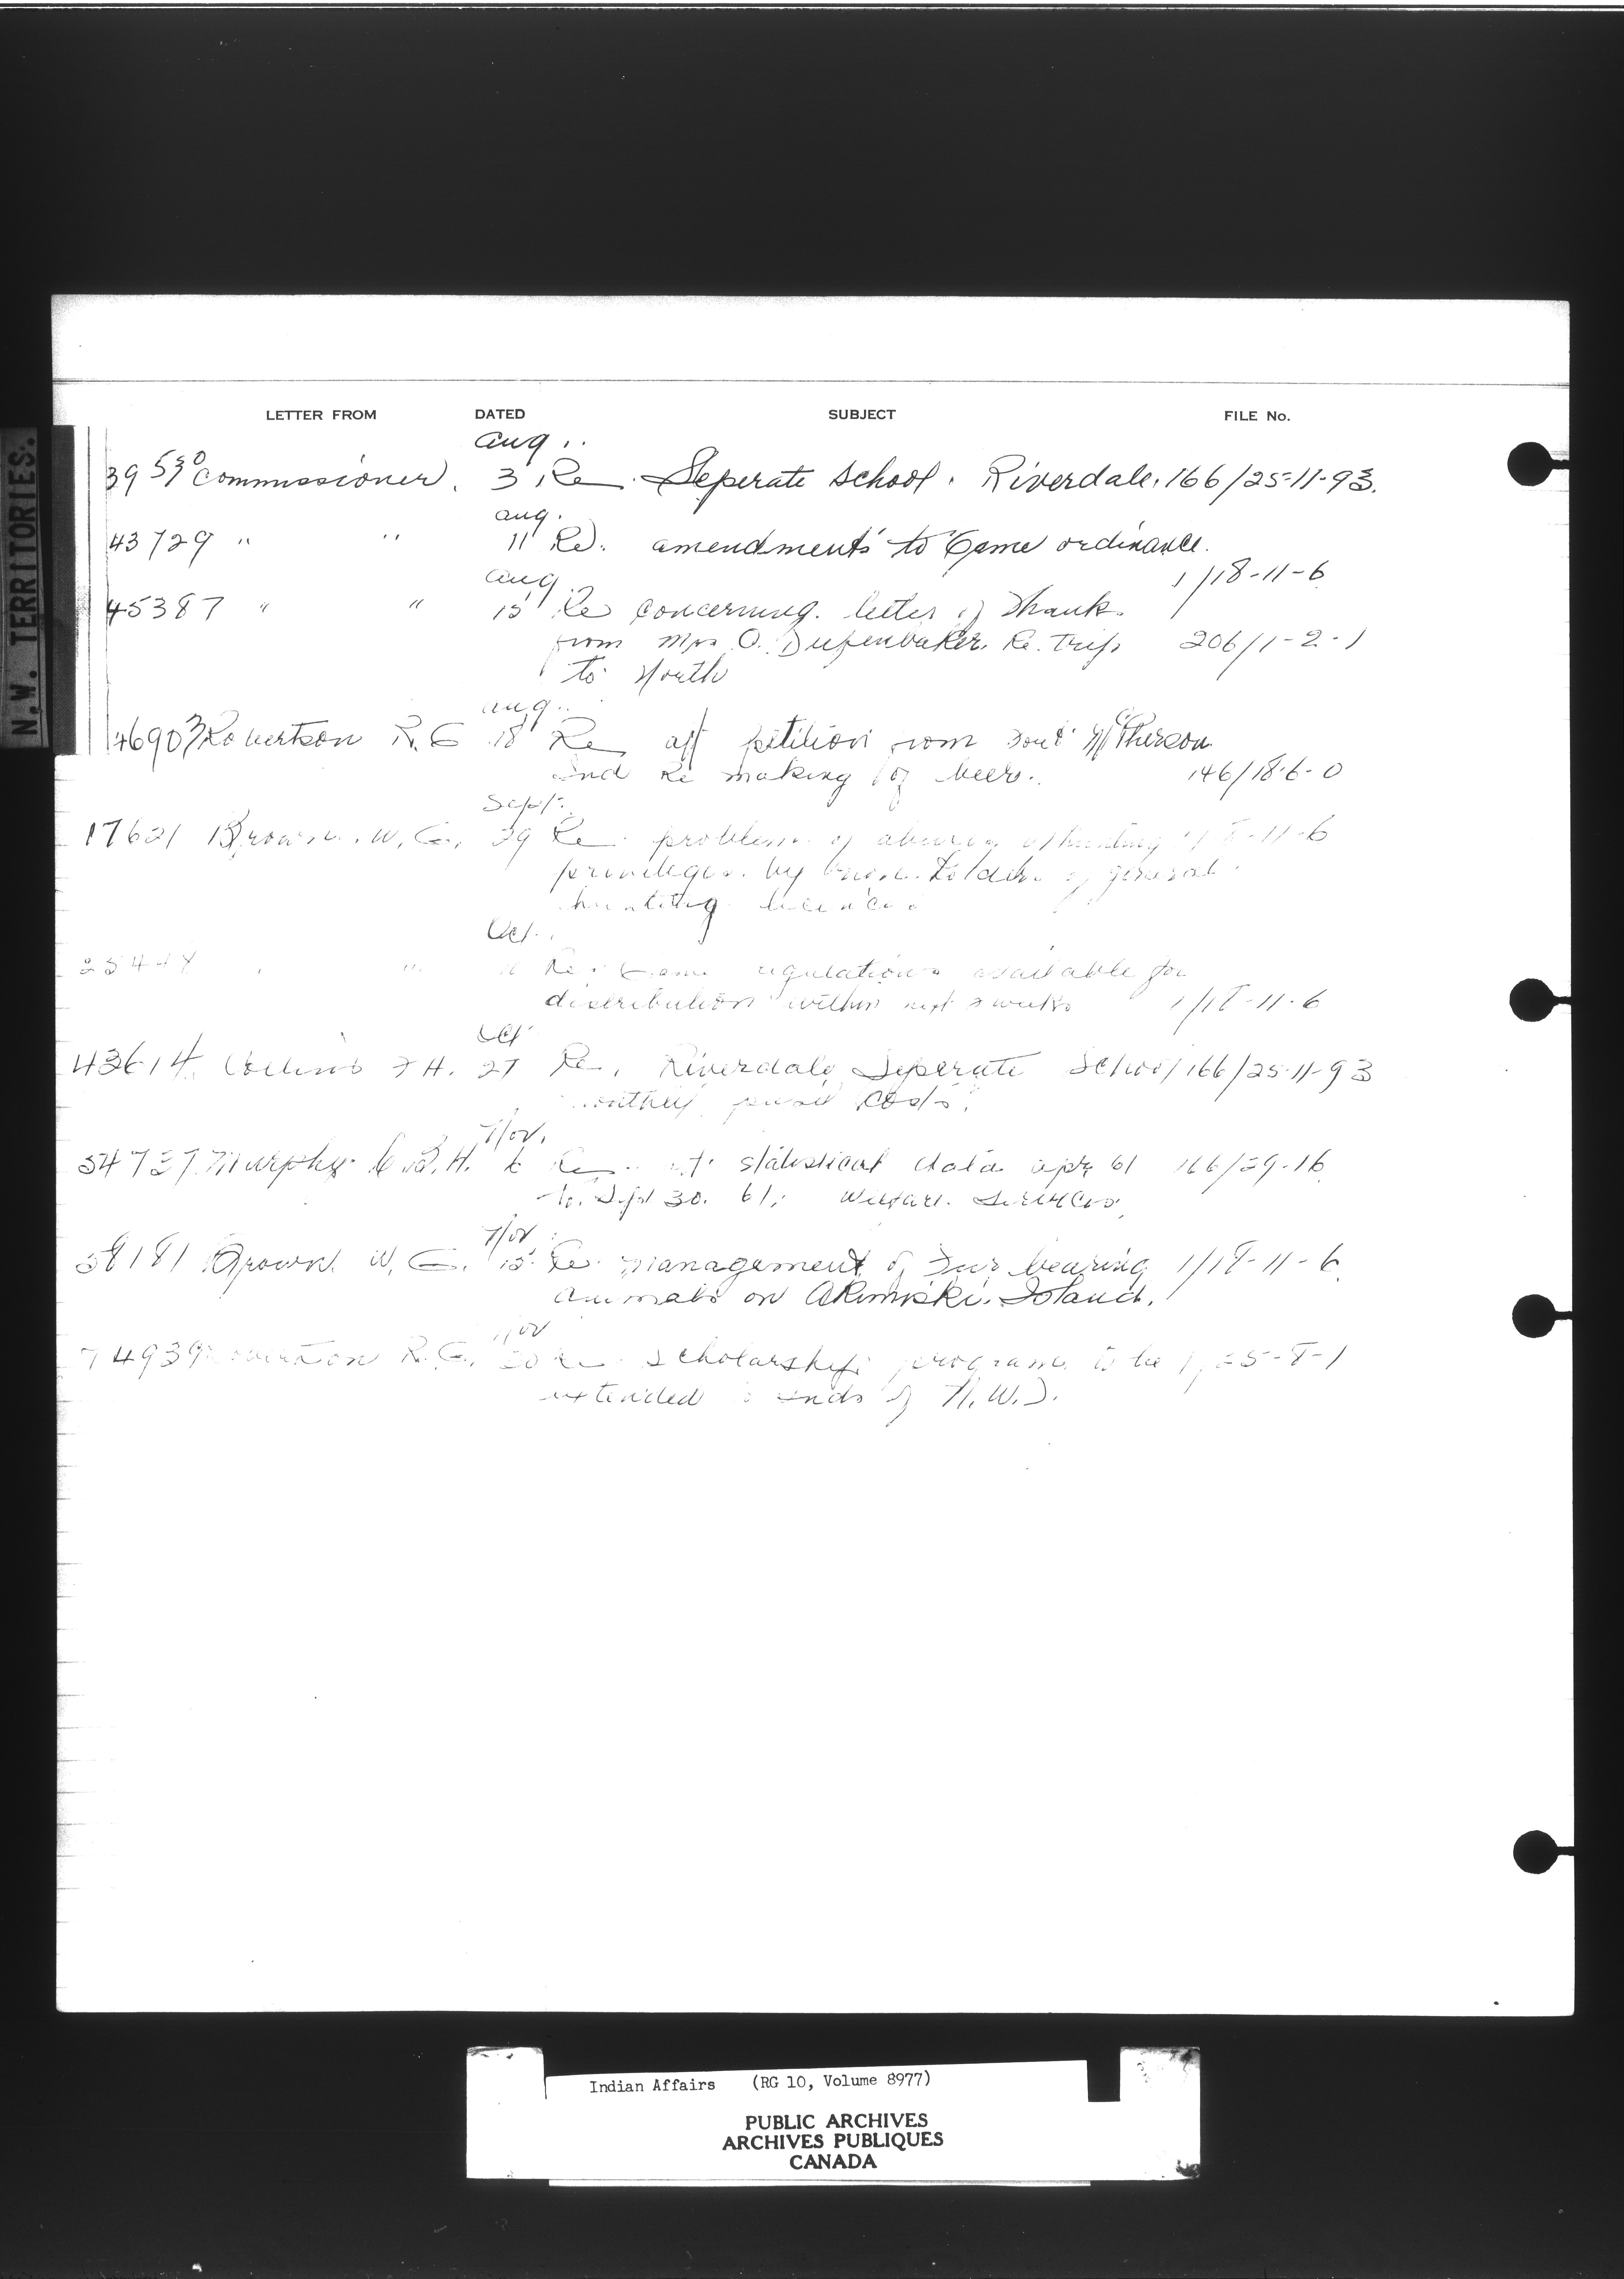 N.W. TERRITORIES.
LETTER FROM DATED SUBJECT FILE No.
Aug.
39530 Commissioner. 3 Re. Seperate School. Riverdale. 166/25-11-93.
Aug.
43729 " " 11 Re. amendments to Game ordinance.
Aug 1/18-11-6
45387 " " 15 Re concerning letter of Thank
from Mrs O. Diefenbaker. Re. trip 206/1-2-1
to North
Aug.
46903 Robertson R.G 18 Re petition from Fort McPherson
Ind Re making of beer. 146/18-6-0
Sept.
17621 Brown. W.G. 29 Re problem of abuses of hunting 1/18-11-6
privileges by holders of general
hunting licences
Oct.
" Re. Game regulations available for
distribution within next 2 weeks 1/18-11-6
Oct
43614 Collins F H. 27 Re. Riverdale Seperate School 166/25-11-93
monthly costs.
Nov.
54737 Murphy C.B.H. 6 Re statistical data Apr 61 166/29-16
to Sept 30. 61; Welfare Services
Nov.
58181 Brown W.G. 15 Re management of Fur bearing 1/18-11-6
animals on Akimiski Island.
Nov
74939 Robertson R.G. 30 Re scholarship program to be 1/25-8-1
extended Inds of N.W.T.
Indian Affairs (RG 10, Volume 8977)
PUBLIC ARCHIVES
ARCHIVES PUBLIQUES
CANADA